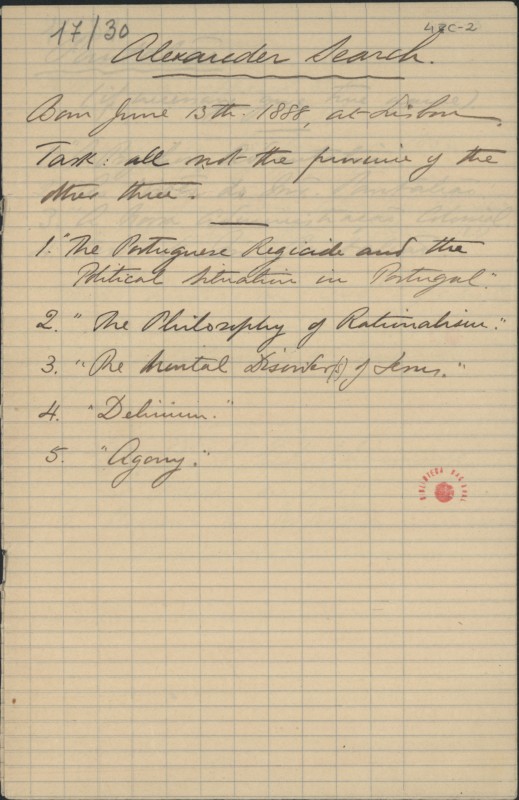 17/30
48C-2
Alexander Search.
Born June 13th. 1888, at Lisbon.
Task: all not the province of the
other three.
1. "The Portuguese Regicide and the
Political Situation in Portugal".
2. "The Philosophy of Rationalism."
3. "The Mental Disorder(s) of Jesus."
4. "Delirium."
5. "Agony."
BIBLIOTECA NACIONAL